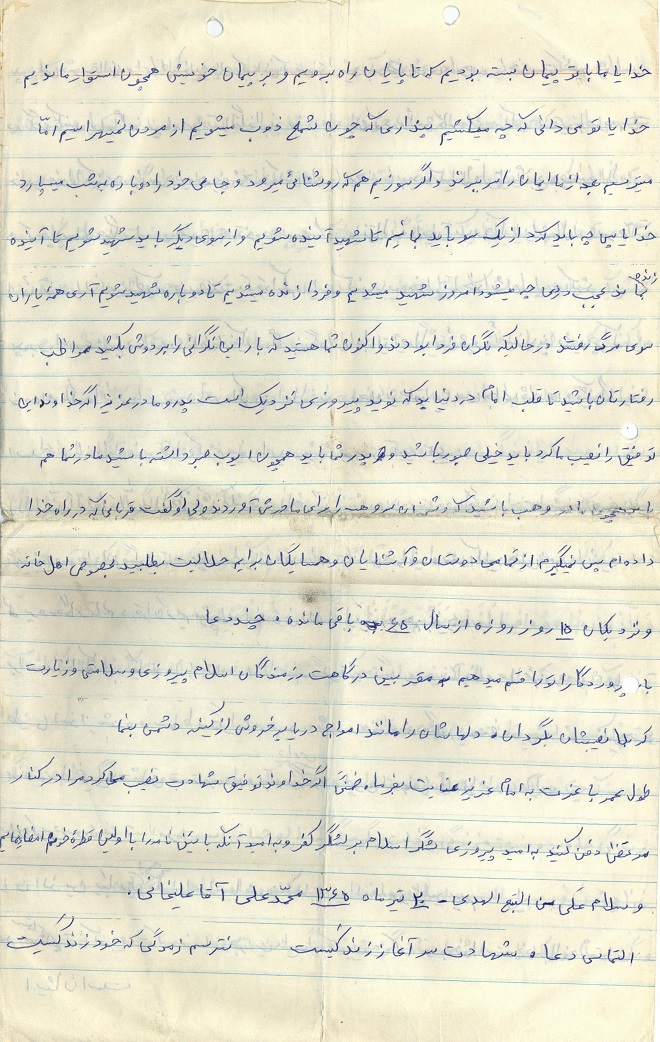 خدایا ما با تو پیمان بسته بودیم که تا پایان راه برویم و بر پیمان خویش همچون استوار ماندیم
خدایا تو می دانی که چه میکشیم پنداری که چون شمع ذوب میشویم از مردن نمیهراسیم امّا
میترسیم بعد از ما ایمان را سر ببرند و اگر سوزیم هم که روشنائی میرود و جای خود را دوباره به شب میسپارد
خدایا پس چه باید کرد از یک سو باید بمانیم تا شهید آینده شویم و از سوی دیگر باید شهید شویم تا آینده
زنده
بماند عجب دردی چه میشد امروز شهید میشدیم و فردا زنده میشدیم تا دوباره شهید شویم آری همهٔ یاران
سوی مرگ رفتند در حالیکه نگران فردا بودند و اکنون شما هستید که بار این نگرانی را بر دوش بکشید مواظب
رفتارتان باشید تا قلب امام در دنیا بود که نوید پیروزی نزدیک است پدر و مادر عزیز اگر خداوند این
توفیق را نصیب ما کرد باید خیلی صبور باشید و پدر شما باید همچون ایوب صبر داشته باشید مادر شما هم
باید همچون مادر وهب باشید که دشمنان سر وهب را برای مادرش آوردند ولی او گفت قربانی که در راه خدا
داده ام پس نمیگیرم از تمامی دوستان و آشنایان و همسایگان برایم حلالیت بطلبید بخصوص اهل خانه
و نزدیکان ۱۵ روز روزه از سال ۶۵ باقی مانده ۰ چند دعا
بار پروردگارا تو را قسم میدهیم به مقربین درگاهت رزمندگان اسلام پیروزی و سلامتی و زیارت
کربلا نصیبشان بگردان ۰ دلهایشان را مانند امواج دریا پر خروش از کینه دشمن بنما
طول عمر با عزت به امام عزیز عنایت بفرما. ضمناً اگر خداوند توفیق شهادت نصیب ما کرد مرا در کنار
مرتضی دفن کنید به امید پیروزی لشگر اسلام بر لشگر کفر و به امید آنکه با یتان نامه را با اولین قطره خونم امضا نمایم
و سلام علی من التبع الهدی - ۲۰ تیر ماه ۱۳۶۵ محمّد علی آقا علیخانی.
التماس دعا ۰ شهادت سر آغاز زندگیست نترسم ز مرگی که خود زندگیست